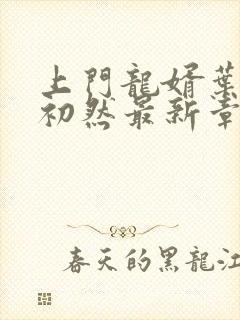 上門龍婿葉
初然最新章
春天的黑龍江